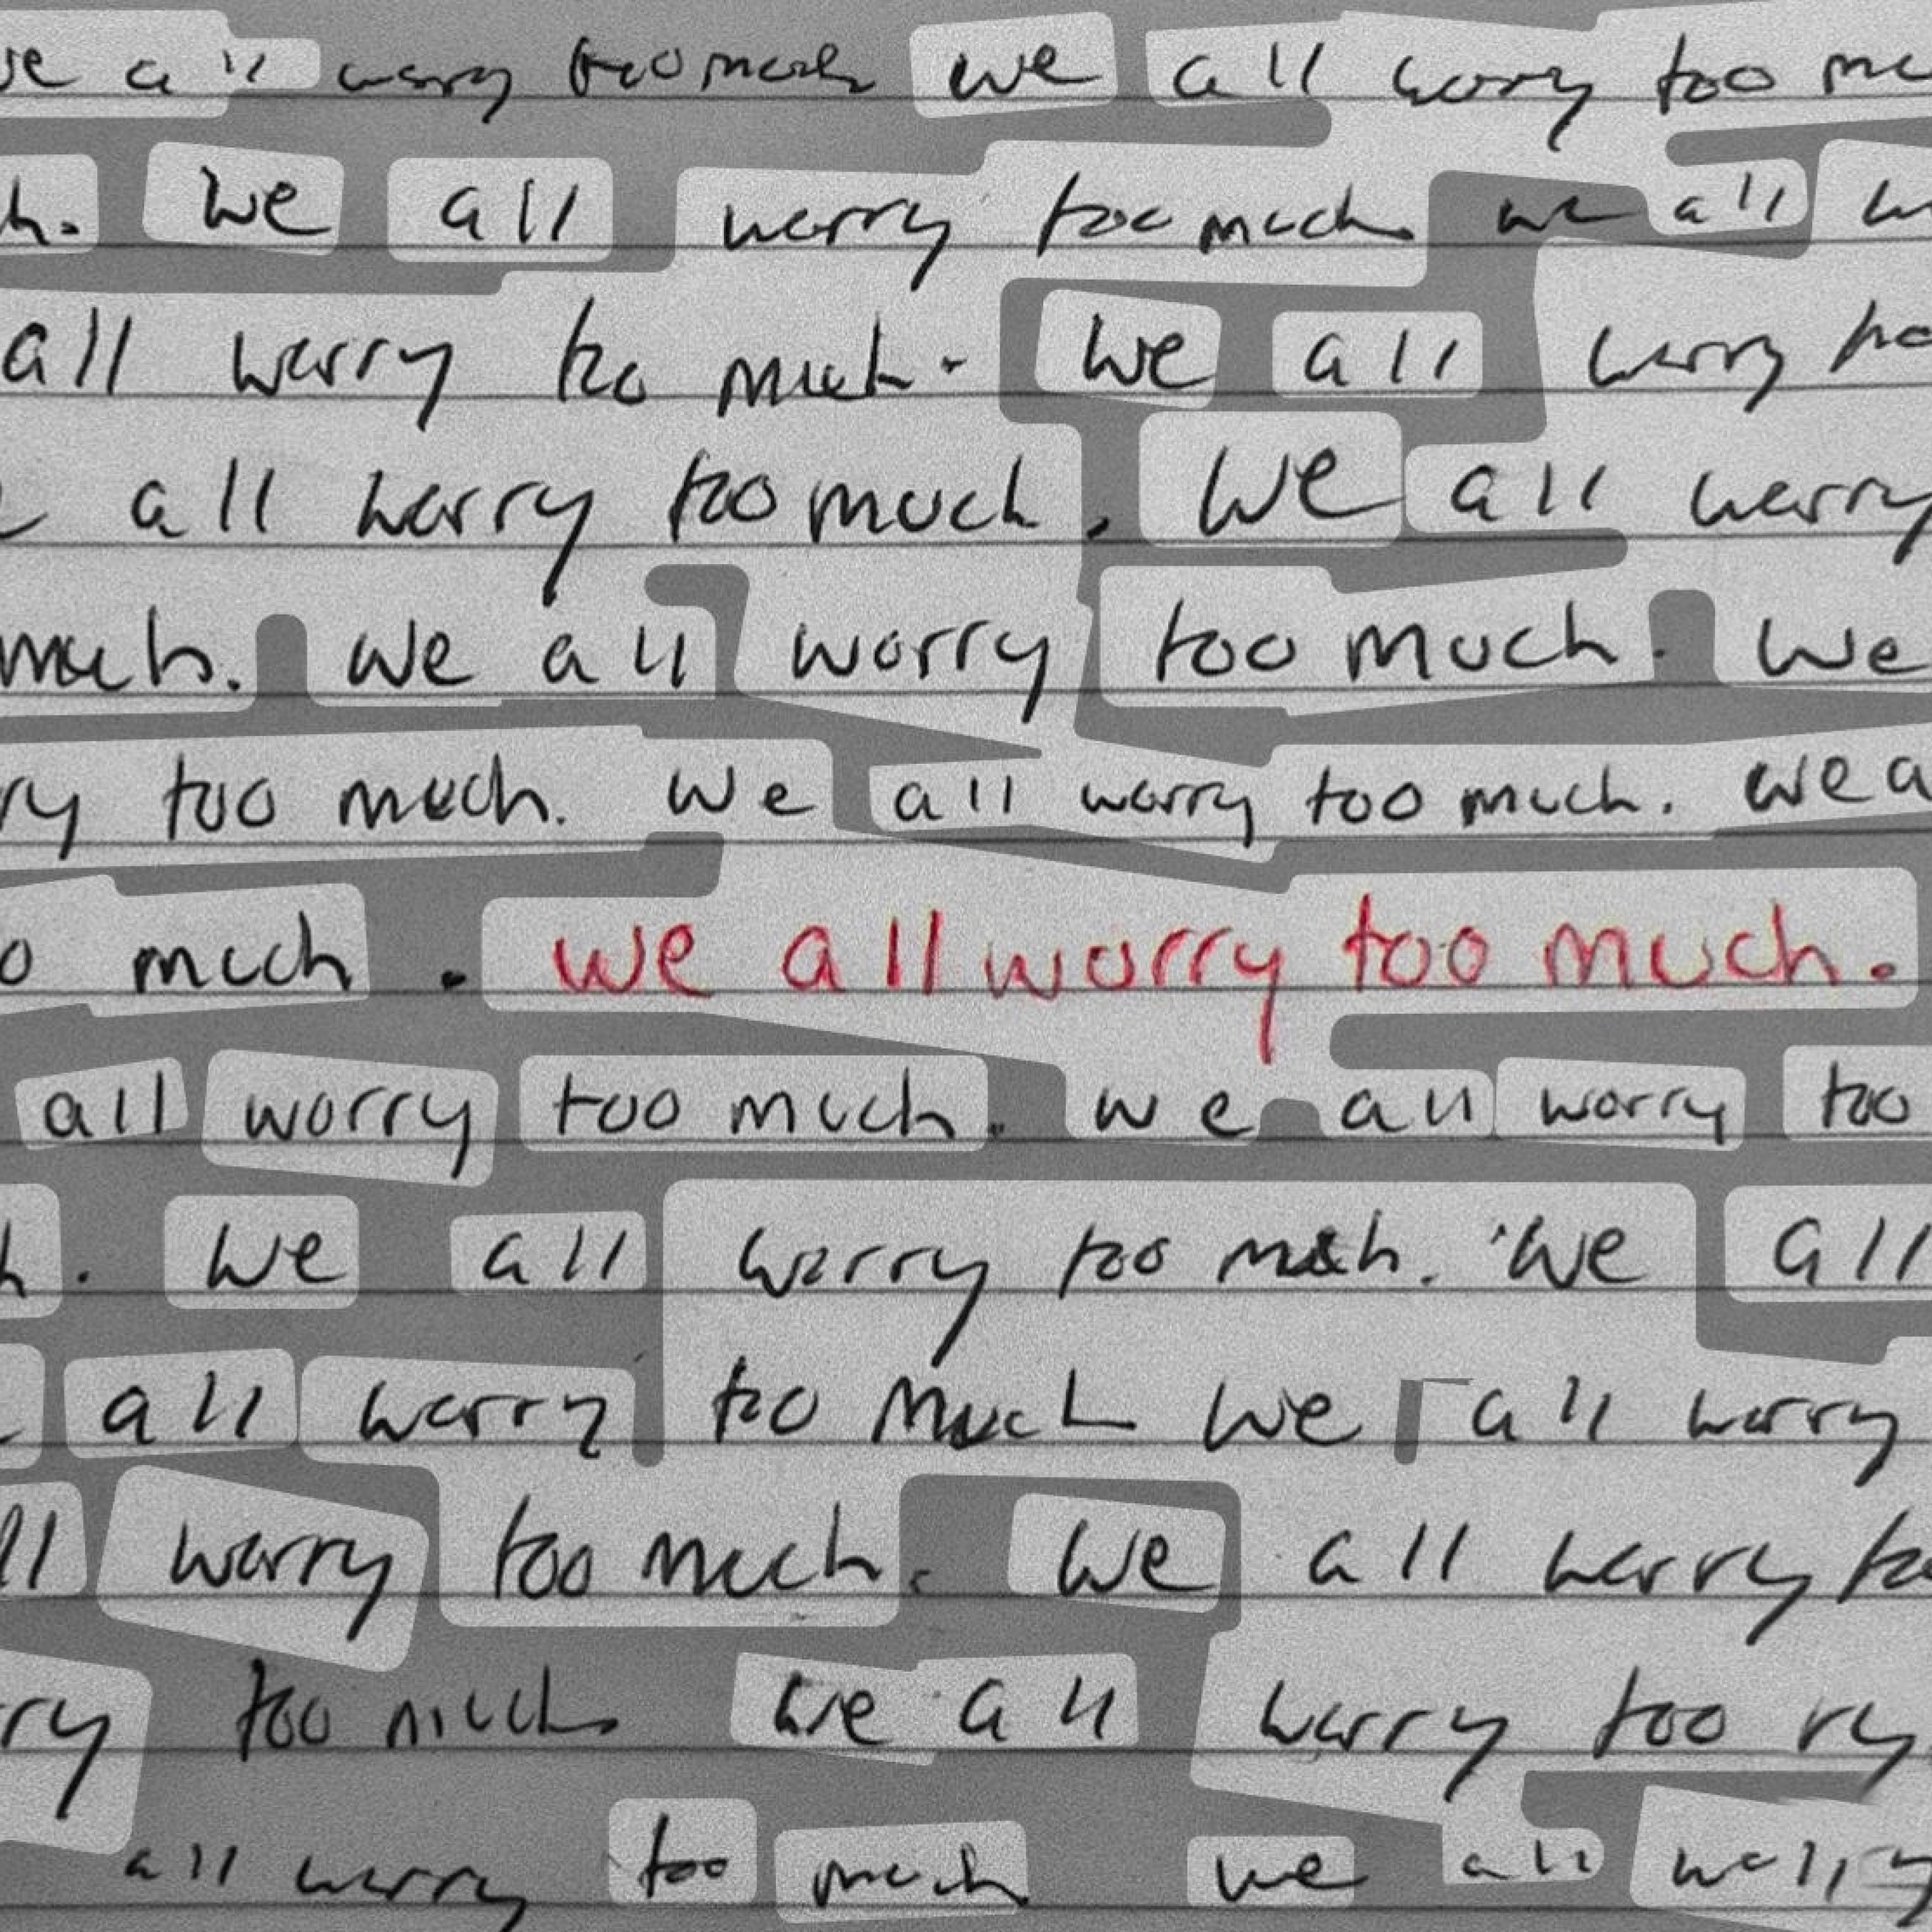 we all worry too much we all worry too mu
h. We all worry too much we all w
all worry too much. We all worry to
e all worry too much. We all worry
much. We all worry too much. We
ry too much. We all worry too much. We a
o much. We all worry too much.
all worry too much. We all worry too
h. We all worry too much. We all
all worry too much We all worry
ll worry too much. We all worry to
ry too much we all worry too ry
all worry too much we all